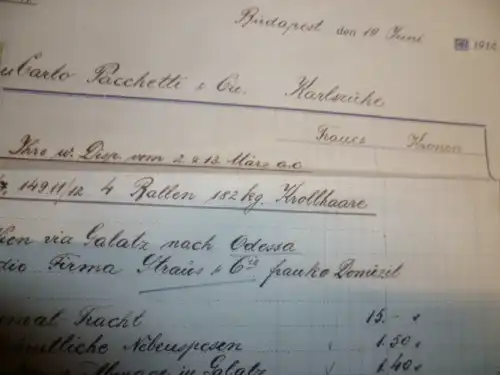 Budapest den 19 Juni 191
Carlo Pacchetti & Cie. Karlsruhe
Francs Kronen
Ihre w. Disp. vom 2. & 13. März a.c.
14911/12 4 Ballen 182 kg. Krollhaare
via Galatz nach Odessa
Firma Straus & Cie franko Domizil
Fracht 15.-
Nebenspesen 1.50
in Galatz 1.40